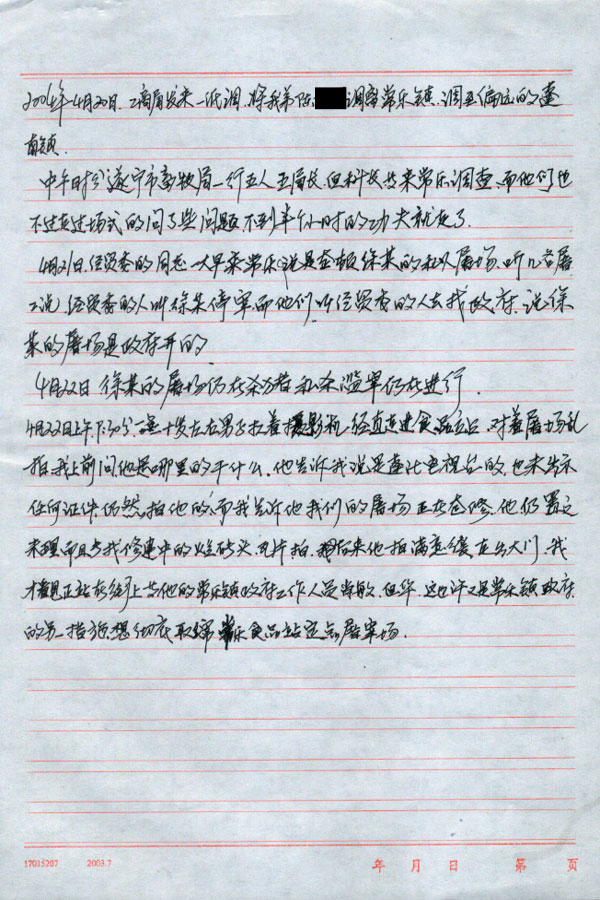 2004年4月20日.工商局发来一纸调.将我弟陈 调离常乐镇.调至偏远的蓬
南镇.
中午时分遂宁市畜牧局一行五人王局长.但科长等来常乐调查.而他们也
不过走过场式的问了些问题不到半个小时的功夫就走了.
4月21日.经贸委的同志一大早来常乐说是查封徐某的私人屠场.听几名屠
工说.经贸委的人叫徐某停宰.而他们叫经贸委的人去找政府.说徐
某的屠场是政府开的
4月22日.徐某的屠场仍在杀 私杀滥宰仍在进行.
4月22日上午 十岁左右男子扛着摄影机.径直走进食品站.对着屠场乱
拍.我上前问.他是哪里的干什么.他告诉我说是 电视台的.也未出示
任何证件.仍然拍他的.而我告诉他我们的屠场正在整修.他仍置之
未理.而且与我修建中的烂砖头.瓦片拍.后来他拍满意缓走出大门.我
才 见正站在 上等他的常乐镇政府工作人员 但华.这也许又是常乐镇政府
的另一措施.想彻底取缔常乐食品站定点屠宰场.
17015207 2003.7 年 月 日 第 页